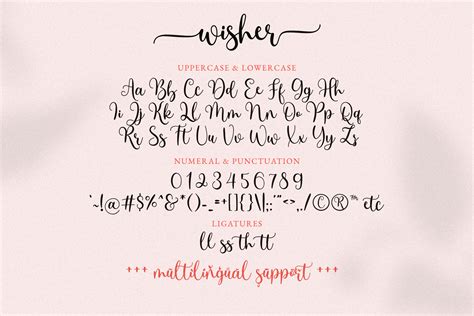 wisher
UPPERCASE & LOWERCASE
Aa Bb Cc Dd Ee Ff Gg Hh
Ii Jj Kk Ll Mm Nn Oo Pp Qq
Rr Ss Tt Uu Vv Ww Xx Yy Zz
NUMERAL & PUNCTUATION
0 1 2 3 4 5 6 7 8 9
`~!@#$%^&*()-_=+[]{}\|;:'"<>,./©®™ etc
LIGATURES
ll ss th tt
+++ multilingual support +++